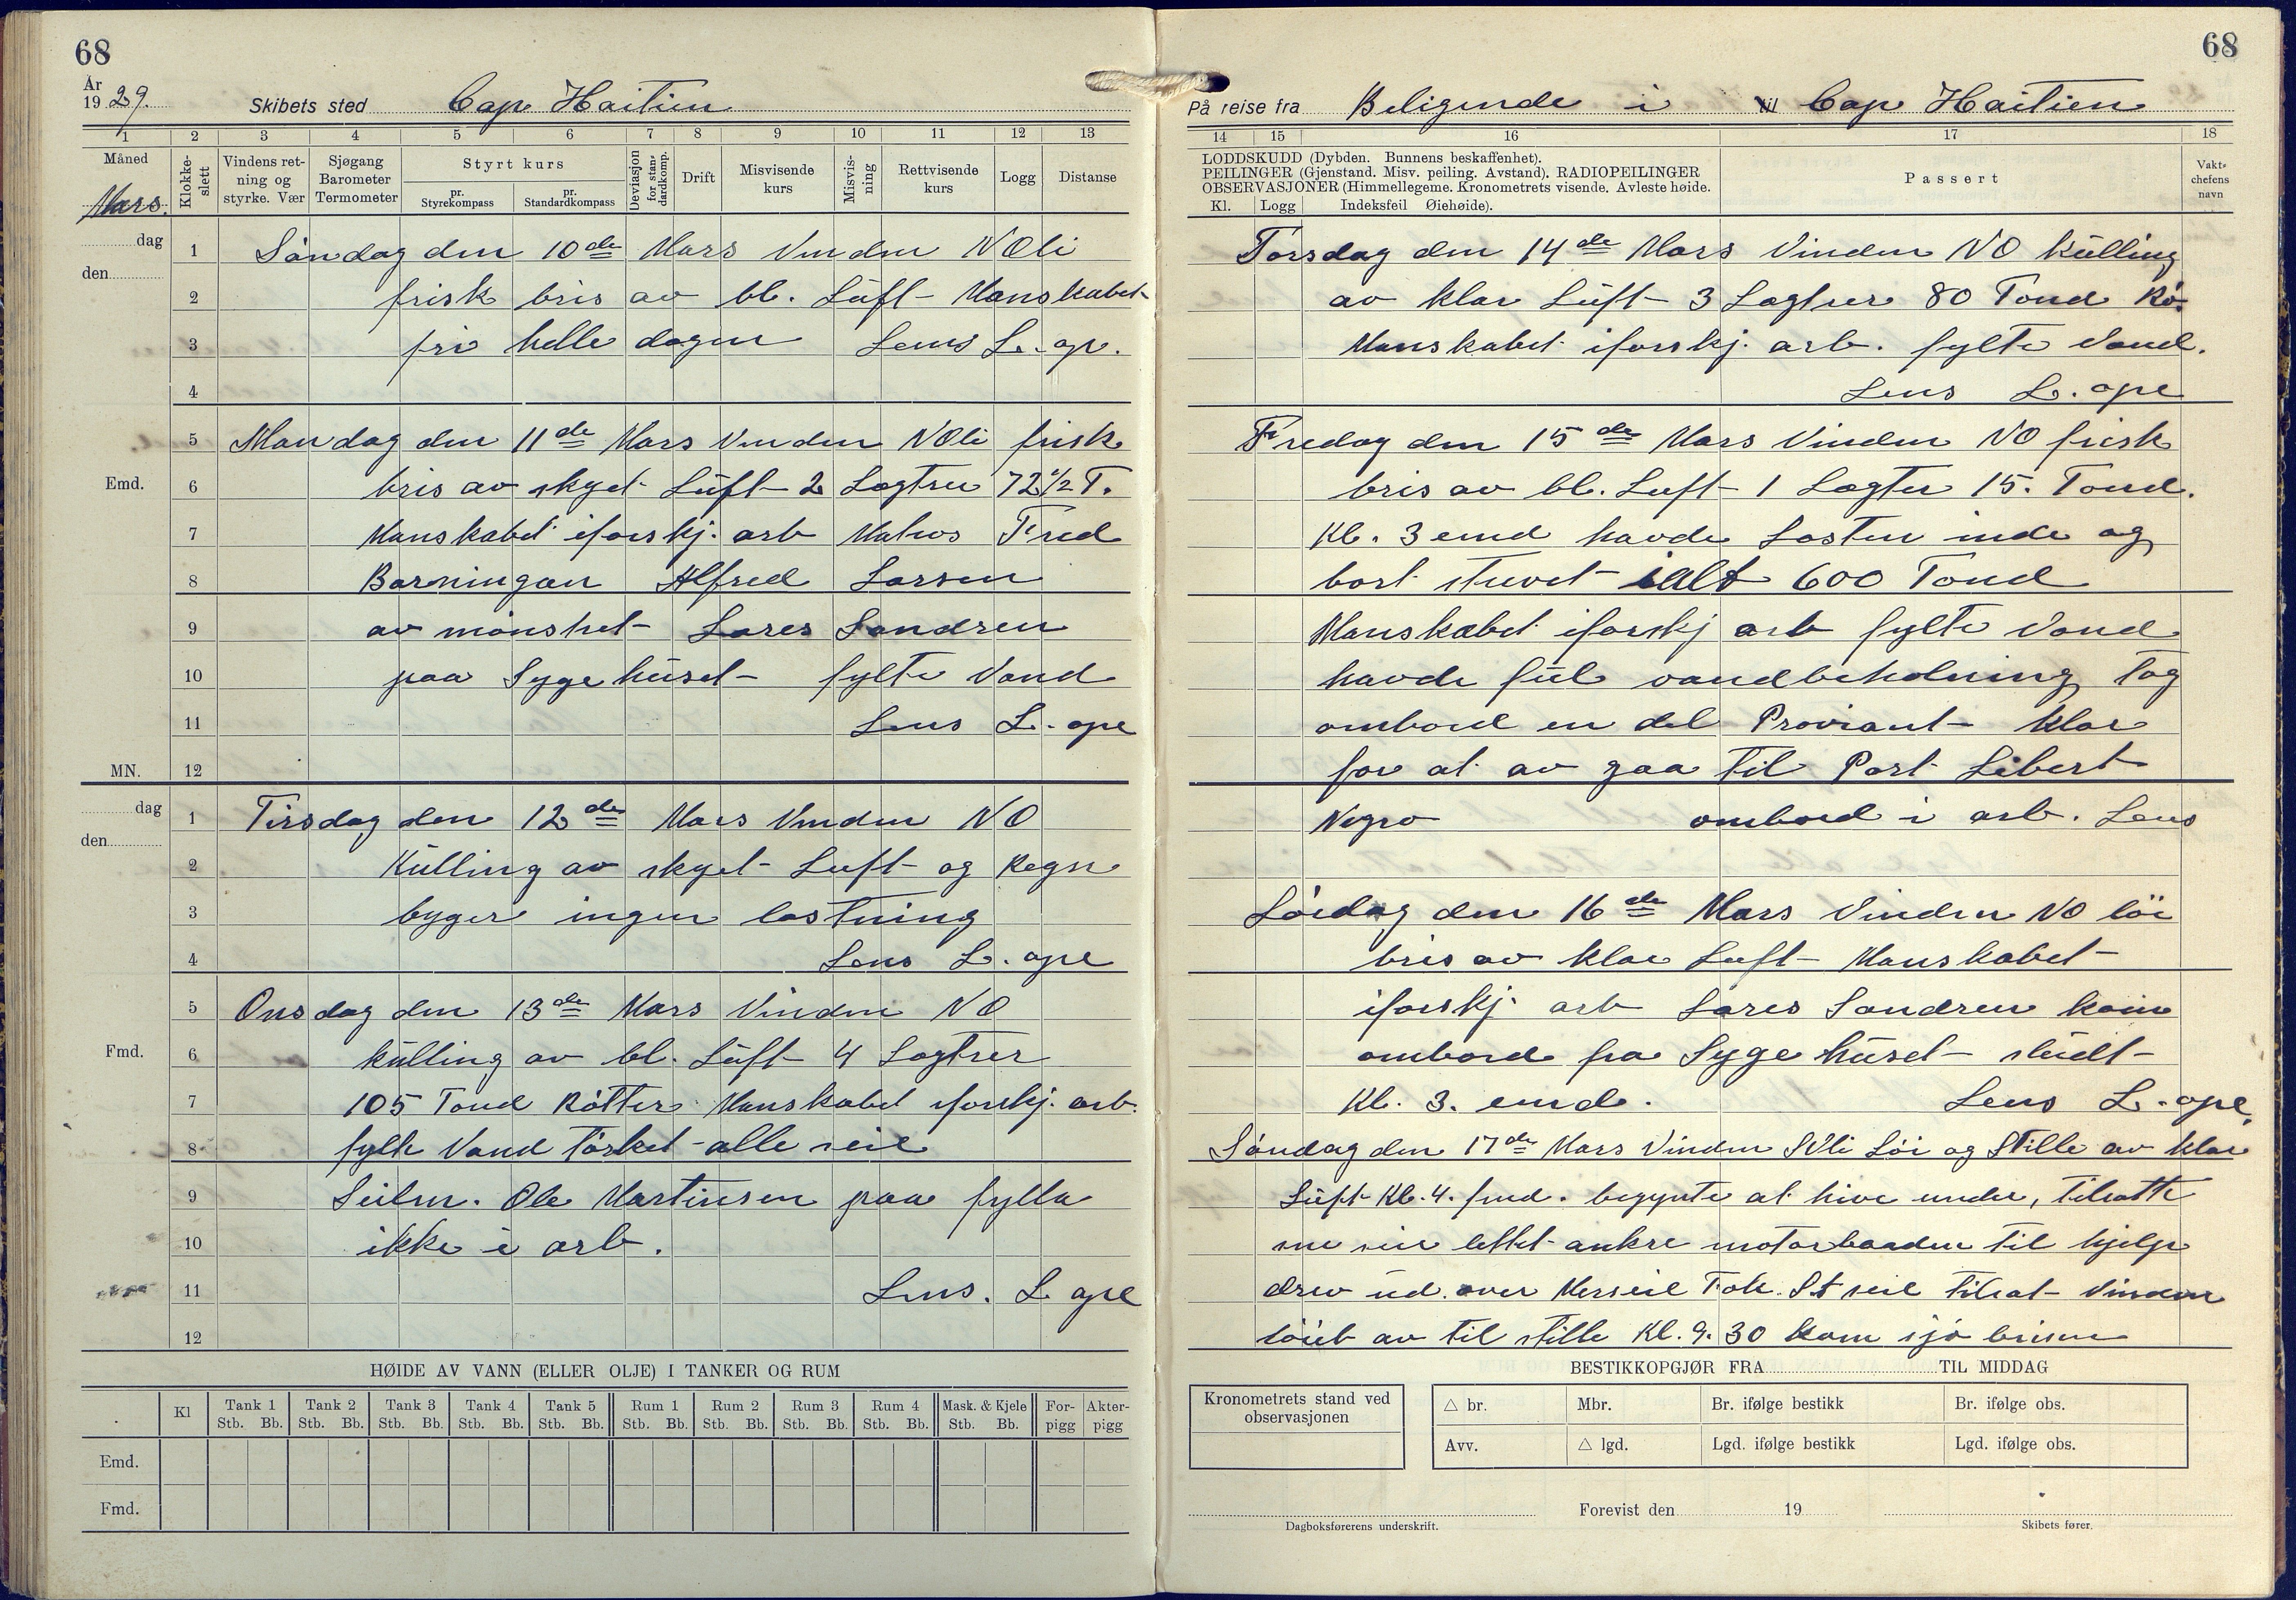 68
År
1929.
Skibets sted Cap Haitien
1 2 3 4 5 6 7 8 9 10 11 12 13
Måned
Mars.
Klokke-
slett
Vindens ret-
ning og
styrke. Vær
Sjøgang
Barometer
Termometer
Styrt kurs
pr.
Styrekompass
pr.
Standardkompass
Deviasjon
for stan-
dardkomp.
Drift
Misvisende
kurs
Misvis-
ning
Rettvisende
kurs
Logg
Distanse
dag
den
1 Søndag den 10de Mars Vinden NOli
2 frisk bris av bl. Luft Manskabet
3 fri helle dagen Lens L. ope.
4
5 Mandag den 11de Mars Vinden NOli frisk
Emd. 6 bris av skyet Luft 2 Lagtrer 72 1/2 T.
7 Manskabet iforskj. arb Matros Fred
8 Barningan Alfred Larsen
9 av mønstret Lares Sandren
10 paa Sygehuset fylte Vand
11 Lens L. ope
MN. 12
dag
den
1 Tirsdag den 12de Mars Vinden NO
2 Kulling av skyet Luft og Regn
3 byger ingen lastning
4 Lens L. ope
5 Onsdag den 13de Mars Vinden NO
Fmd. 6 kulling av bl. Luft 4 Lagtrer
7 105 Tond Røtter Manskabet iforskj. arb.
8 fylte Vand Tørket alle seil
9 Seilm. Ole Martinsen paa fylla
10 ikke i arb.
11 Lens. L ope
12
HØIDE AV VANN (ELLER OLJE) I TANKER OG RUM
Kl Tank 1 Tank 2 Tank 3 Tank 4 Tank 5 Rum 1 Rum 2 Rum 3 Rum 4 Mask. & Kjele For- Akter-
Stb. Bb. Stb. Bb. Stb. Bb. Stb. Bb. Stb. Bb. Stb. Bb. Stb. Bb. Stb. Bb. Stb. Bb. Stb. Bb. pigg pigg
Emd.
Fmd.
68
På reise fra Beligende i til Cap Haitien
14 15 16 17 18
LODDSKUDD (Dybden. Bunnens beskaffenhet).
PEILINGER (Gjenstand. Misv. peiling. Avstand). RADIOPEILINGER
OBSERVASJONER (Himmellegeme. Kronometrets visende. Avleste høide.
Kl. Logg Indeksfeil Øiehøide).
Passert
Vakt-
chefens
navn
Torsdag den 14de Mars Vinden NO Kulling
av klar Luft 3 Lagtrer 80 Tond Rø.
Manskabet iforskj. arb. fylte Vand.
Lens L. ope
Fredag den 15de Mars Vinden NO frisk
bris av bl. Luft 1 Lagter 15. Tond.
Kl. 3 emd havde Lasten inde og
bort stuvet ialt 600 Tond
Manskabet iforskj arb fylte Vand
havde ful vandbeholning Tog
ombord en del Proviant Klar
for at av gaa til Port Libert
Negro ombord i arb. Lens
Lørdag den 16de Mars Vinden NO løi
bris av klar Luft Manskabet
iforskj. arb Lares Sandren kom
ombord fra Sygehuset
Kl. 3. emd. Lens L. ope.
Søndag den 17de Mars Vinden SVli Løi og Stille av klar
Luft Kl. 4. fmd. begynte at hive under, tilsatte
seil lettet ankre motorbaaden til hjelp
drev ud over Merseil Fok. St seil tilsat Vinden
av til stille Kl. 9. 30 kom sjø brisen
BESTIKKOPGJØR FRA TIL MIDDAG
Kronometrets stand ved
observasjonen
△ br. Mbr. Br. ifølge bestikk Br. ifølge obs.
Avv. △ lgd. Lgd. ifølge bestikk Lgd. ifølge obs.
Forevist den 19
Dagboksførerens underskrift. Skibets fører.